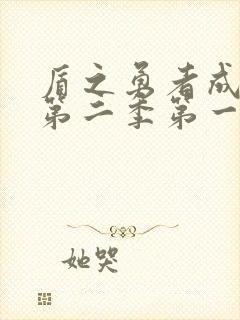 盾之勇者成
第二季第一
她哭